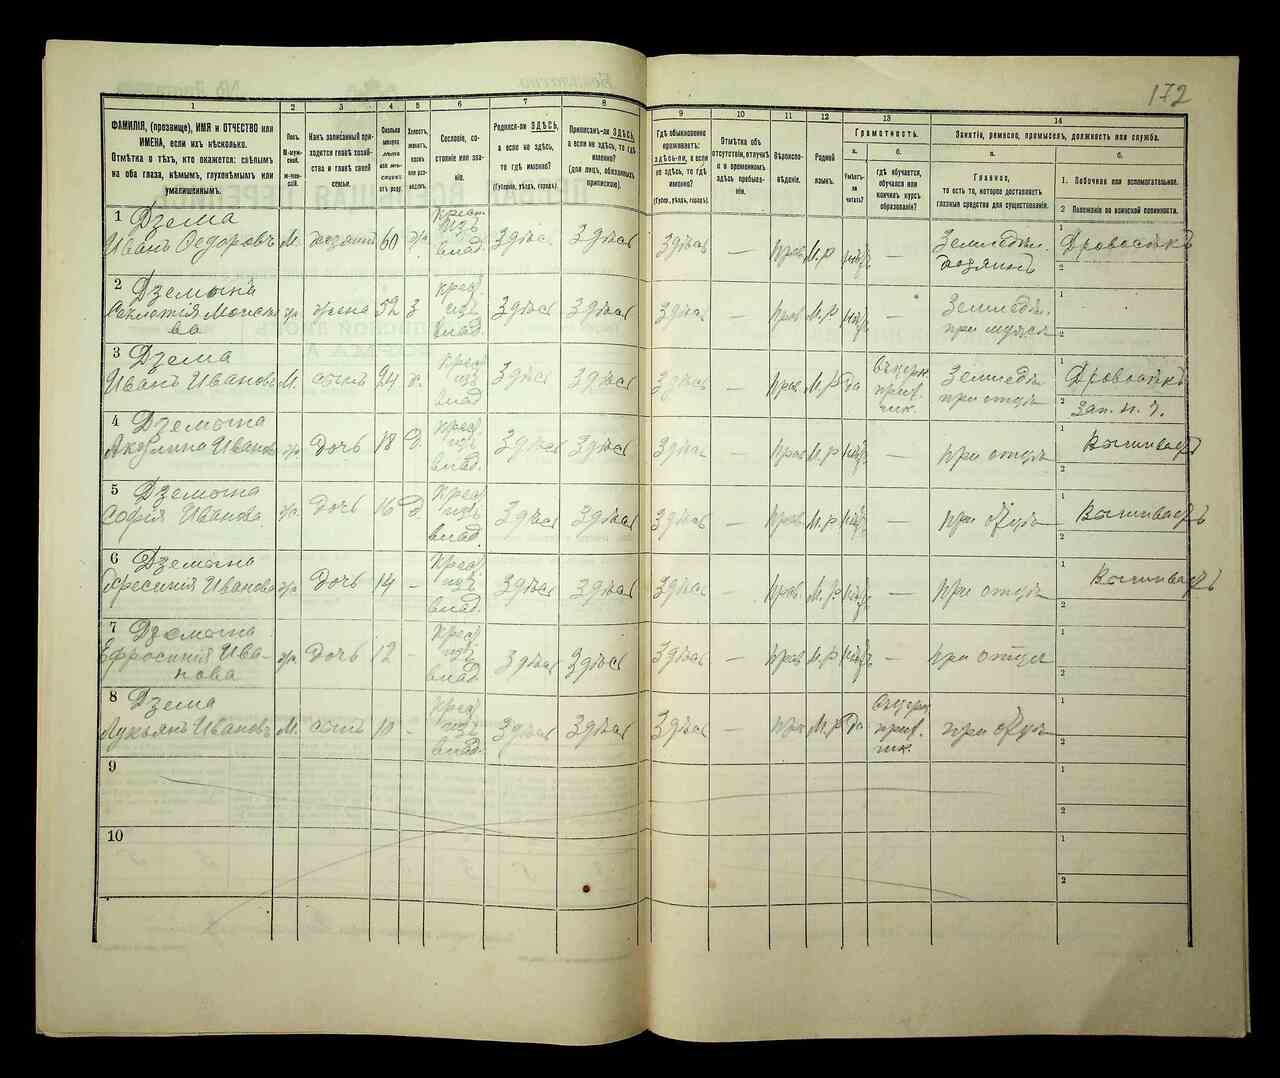 172
1
2
3
4
5
6
7
8
9
10
11
12
13
14
ФАМИЛІЯ, (прозвище), ИМЯ и ОТЧЕСТВО или
ИМЕНА, если ихъ нѣсколько.
Отмѣтка о тѣхъ, кто окажется: слѣпымъ
на оба глаза, нѣмымъ, глухонѣмымъ или
умалишеннымъ.
Полъ.
М-муж-
ской.
Ж-жен-
скій.
Какъ записанный при-
ходится главѣ хозяй-
ства и главѣ своей
семьи.
Сколько
минуло
лѣтъ
или мѣ-
сяцевъ
отъ роду.
Холостъ,
женатъ,
вдовъ
или раз-
веденъ.
Сословіе, со-
стояніе или зва-
ніе.
Родился-ли ЗДѢСЬ,
а если не здѣсь,
то гдѣ именно?
(Губернія, уѣздъ, городъ).
Приписанъ-ли ЗДѢСЬ,
а если не здѣсь, то гдѣ
именно?
(для лицъ, обязанныхъ
припискою).
Гдѣ обыкновенно
проживаетъ:
здѣсь-ли, а если
не здѣсь, то гдѣ
именно?
(Губер., уѣздъ, городъ).
Отмѣтка объ
отсутствіи, отлучкѣ
и о временномъ
здѣсь пребыва-
ніи.
Вѣроиспо-
вѣданіе.
Родной
языкъ.
Грамотность.
а.
Умѣетъ-
ли
читать?
б.
гдѣ обучается,
обучался или
кончилъ курсъ
образованія?
Занятіе, ремесло, промыселъ, должность или служба.
а.
Главное,
то есть то, которое доставляетъ
главныя средства для существованія.
б.
1. Побочное или вспомогательное.
2 Положеніе по воинской повинности.
1 Дзема
Иванъ Федоровъ М. хозяинъ 60 ж. Крест. изъ влад. Здѣсь Здѣсь Здѣсь — Прав. М.р нѣтъ — Земледѣл. хозяинъ 1 Дровосѣкъ
2
2 Дземына
Моисее-
ва ж жена 52 З Крест изъ влад. Здѣсь Здѣсь Здѣсь — Прав М.р нѣтъ — Земледѣл. при мужѣ 1
2
3 Дзема
Иванъ Ивановъ М. сынъ 24 х. Крест изъ влад. Здѣсь Здѣсь Здѣсь — Прав. М.р да въ церк прих. шк. Земледѣл при отцѣ 1 Дровосѣкъ
2 Зап. н. ч.
4 Дземына
Акулина Иванова ж Дочь 18 Д Крест изъ влад. Здѣсь Здѣсь Здѣсь — Прав М.р нѣтъ — при отцѣ 1
2
5 Дземына
Софія Иванова ж. Дочь 16 Д Крест изъ влад. Здѣсь Здѣсь Здѣсь — Прав. М.р нѣтъ — при отцѣ 1
2
6 Дземына
Ксенія Иванова ж Дочь 14 - Крест изъ влад. Здѣсь Здѣсь Здѣсь — Прав. М.р нѣтъ — при отцѣ 1
2
7 Дземына
Ефросинія Ива-
нова ж Дочь 12 - Крест изъ влад. Здѣсь Здѣсь Здѣсь — Прав М.р нѣтъ — при отцѣ 1
2
8 Дзема
Лукьянъ Ивановъ М. сынъ 10 - Крест изъ влад. Здѣсь Здѣсь Здѣсь — Прав М.р да въ церк прих. шк. при отцѣ 1
2
9 1
2
10 1
2